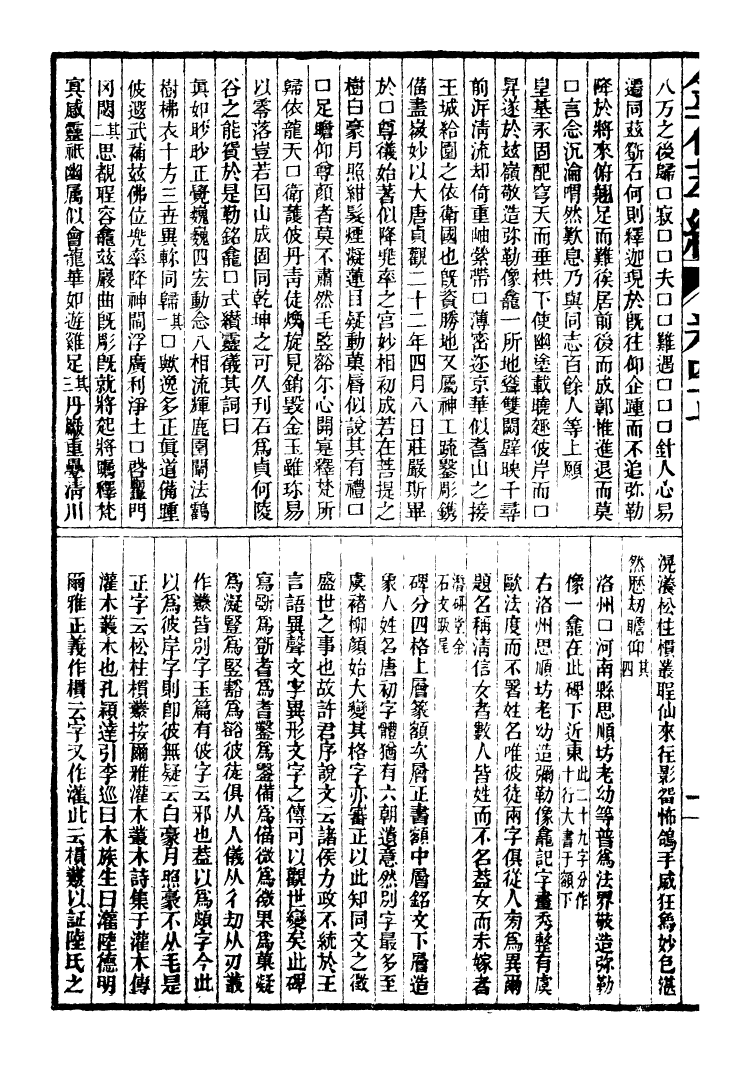 八万之後歸口寂口口夫口口難遇口口口針人心易
遷同兹斲石何則釋迦現於旣往仰企踵而不追弥勒
降於將來俯翹足而難徯居前後而成鄣惟進退而莫
口言念沉淪喟然歎息乃與同志百餘人等上願
皇基永固配穹天而垂栱下使幽塗載曉趂彼岸而口
昇遂於兹嶺敬造弥勒像龕一所地聳雙闕壁映千尋
前泝清流却倚重岫縈帶口薄密迩京華似耆山之接
王城給園之依衛國也旣資勝地又屬神工疏鑿彫鐫
俻盡㣲妙以大唐貞觀二十二年四月八日莊嚴斯畢
於口尊儀始著似降兠率之宮妙相初成若在菩提之
樹白豪月照紺髮煙凝蓮目疑動菓脣似說其有禮口
口足瞻仰尊顏者莫不肅然毛竪豁尔心開寔釋梵所
歸依龍天口衛䕶彼丹靑徒煥旋見銷毀金玉雖珎易
以零落豈若因山成固同乾坤之可久刊石爲貞何陵
谷之能貿於是勒銘龕口式纉靈儀其詞曰
眞如眇眇正覺巍巍四宏動念八相流輝鹿園闡法鶴
樹佛衣十方三世異軫同歸其一口歟逸多正眞道備踵
彼遺武荷兹佛位兠率降神閻浮廣利淨土口啓豐門
罔閟其二思覩琞容龕兹巖曲旣彫旣就將起將矚釋梵
寘感靈祇幽屬似會龍華如遊雞足其三丹巘重疊清川
滉瀁松桂樌叢琞仙來往影㽞怖鴿手威狂象妙色湛
然歷劫瞻仰其四
洛州口河南縣思順坊老幼等普爲法界敬造弥勒
像一龕在此碑下近東此二十九字分作十行大書于額下
右洛州思順坊老幼造彌勒像龕記字畫秀整有虞
歐法度而不署姓名唯彼徒兩字俱從人旁爲異爾
題名稱清信女者數人皆姓而不名葢女而未嫁者
潛硏堂金石文跋尾
碑分四格上層篆額次層正書額中層銘文下層造
象人姓名唐初字體猶有六朝遺意然別字最多至
虞褚柳顏始大變其格字亦審正以此知同文之徵
盛世之事也故許君序說文云諸侯力政不統於王
言語異聲文字異形文字之傳可以觀世變矣此碑
寫斲爲斵耆爲耆鑿爲鑿備爲俻微爲㣲果爲菓疑
爲凝豎爲竪豁爲豁彼徒俱从人儀从彳劫从刃叢
作叢皆別字玉篇有佊字云邪也葢以爲頗字今此
以爲彼岸字則卽彼無疑云白豪月照豪不从毛是
正字云松桂樌叢按爾雅灌木叢木詩集于灌木傳
灌木叢木也孔穎達引李巡曰木族生曰灌陸德明
爾雅正義作樌云字又作灌此云樌叢以証陸氏之